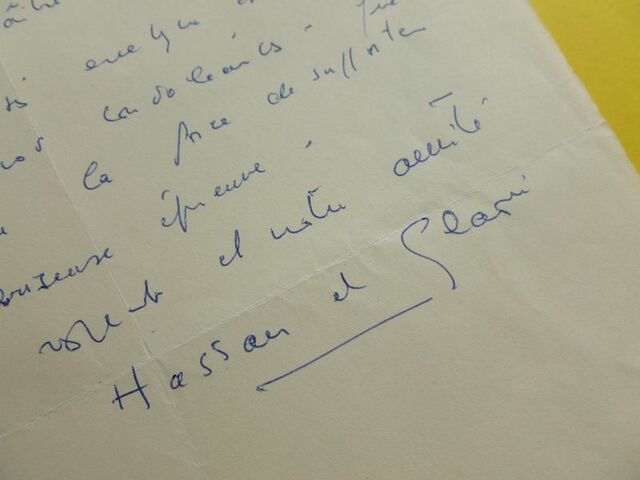 quelque
nos condoléances. Que
la force de supporter
épreuve.
et notre amitié
Hassan el Glaoui